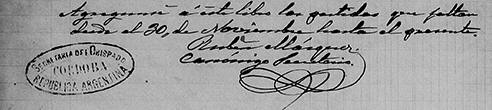 Agreguese á este libro las partidas que faltan
desde el 30, de Noviembre hasta el presente.
Rubén Márquez
Canonigo Secretario
SECRETARIA DEL OBISPADO
CORDOBA
REPUBLICA ARGENTINA